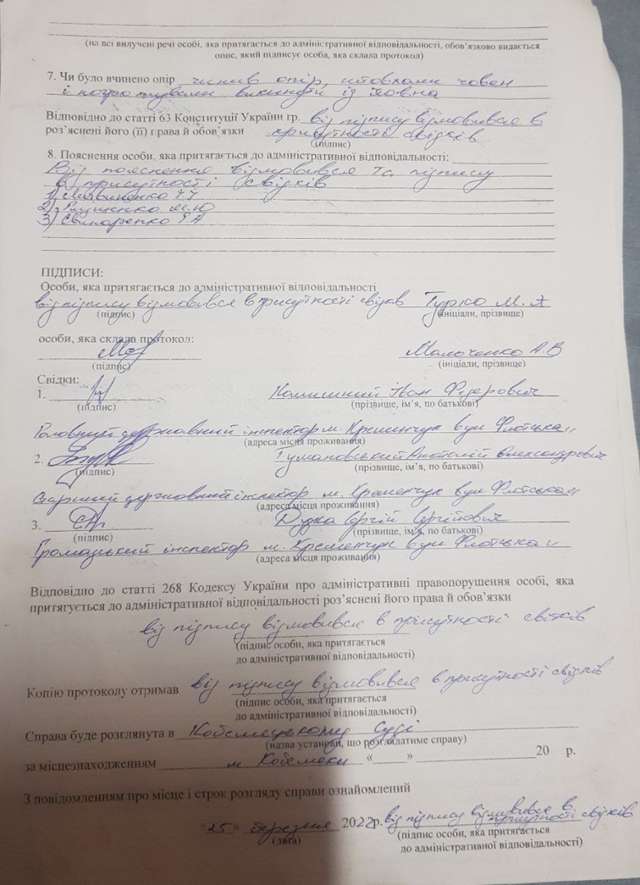 (на всі вилучені речі особі, яка притягається до адміністративної відповідальності, обов'язково видається
опис, який підписує особа, яка склала протокол)
7. Чи було вчинено опір чинив опір, штовхали човен
і погрожували викинути із човна
Відповідно до статті 63 Конституції України гр. від підпису відмовився в
роз'яснені його (її) права й обов'язки присутність свідків
(підпис)
8. Пояснення особи, яка притягається до адміністративної відповідальності:
Від пояснення відмовився та підпису
в присутності свідків
1)
2)
3)
ПІДПИСИ:
Особи, яка притягається до адміністративної відповідальності
від підпису відмовився в присутності свідків Турко М.
(підпис) (ініціали, прізвище)
особи, яка склала протокол:
Мальченко А.В
(підпис) (ініціали, прізвище)
Свідки:
1. Іван
(підпис) (прізвище, ім'я, по батькові)
Головний державний інспектор м. Кременчук вул Флотська
(адреса місця проживання)
2. Тумановський Анатолій Олександрович
(підпис) (прізвище, ім'я, по батькові)
Старший державний інспектор м. Кременчук вул Флотська
(адреса місця проживання)
3. Дудка Сергій Сергійович
(підпис) (прізвище, ім'я, по батькові)
Громадський інспектор м. Кременчук вул Флотська
(адреса місця проживання)
Відповідно до статті 268 Кодексу України про адміністративні правопорушення особі, яка
притягується до адміністративної відповідальності роз'яснені його права й обов'язки
від підпису відмовився в присутності свідків
(підпис особи, яка притягається
до адміністративної відповідальності)
Копію протоколу отримав від підпису відмовився в присутності свідків
(підпис особи, яка притягається
до адміністративної відповідальності)
Справа буде розглянута в Кобеляцькому суді
(назва установи, що розглядатиме справу)
за місцезнаходженням м Кобеляки « » 20 р.
З повідомленням про місце і строк розгляду справи ознайомлений
"25" березня 2022р. від підпису відмовився в
присутності свідків
(дата) (підпис особи, яка притягається
до адміністративної відповідальності)